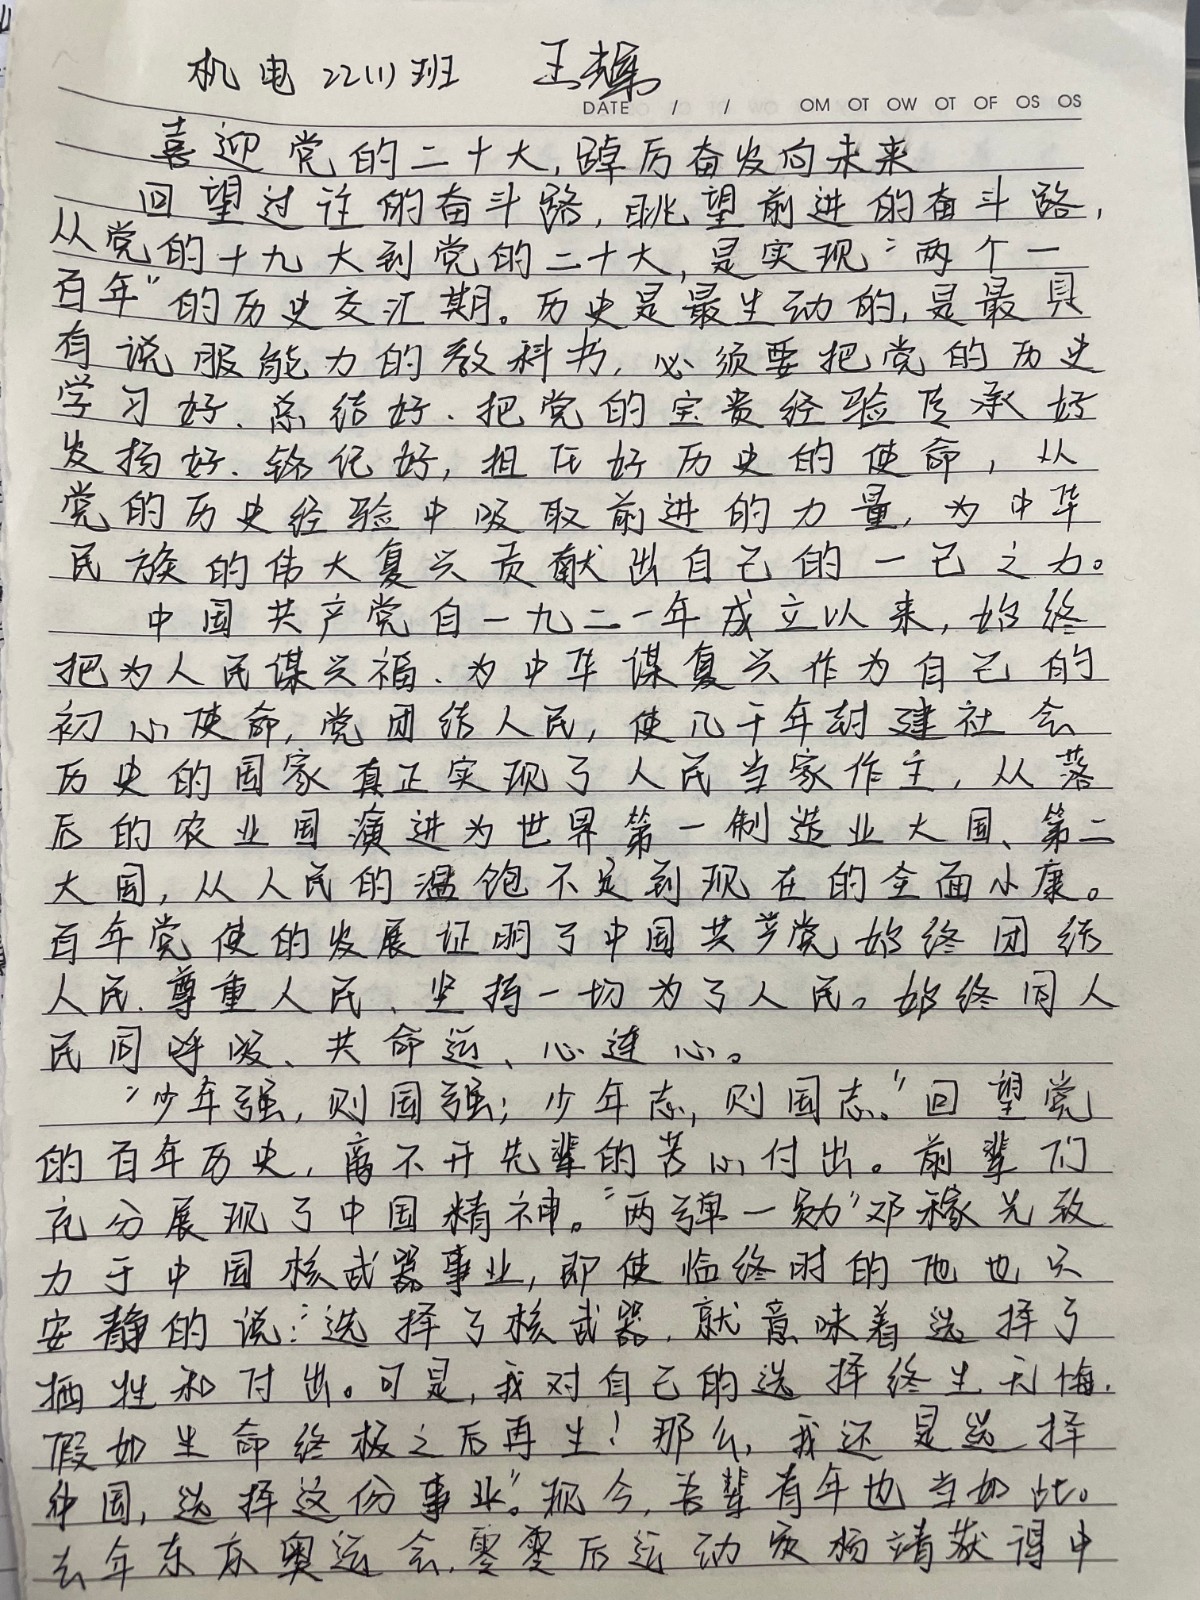 机电22(1)班 王
DATE / / OM OT OW OT OF OS OS
喜迎党的二十大,踔厉奋发向未来
回望过往的奋斗路,眺望前进的奋斗路,
从党的十九大到党的二十大,是实现“两个一
百年”的历史交汇期。历史是最生动的,是最具
有说服能力的教科书,必须要把党的历史
学习好、总结好、把党的宝贵经验传承好
发扬好、铭记好,担在好历史的使命,从
党的历史经验中吸取前进的力量,为中华
民族的伟大复兴贡献出自己的一己之力。
中国共产党自一九二一年成立以来,始终
把为人民谋兴福、为中华谋复兴作为自己的
初心使命,党团结人民,使几千年封建社会
历史的国家真正实现了人民当家作主,从落
后的农业国演进为世界第一制造业大国、第二
大国,从人民的温饱不定到现在的全面小康。
百年党使的发展证明了中国共产党始终团结
人民、尊重人民、坚持一切为了人民。始终同人
民同呼吸、共命运、心连心。
“少年强,则国强;少年志,则国志。”回望党
的百年历史,离不开先辈的苦心付出。前辈们
充分展现了中国精神。“两弹一勋”邓稼先致
力于中国核武器事业,即使临终时的他也只
安静的说:“选择了核武器,就意味着选择了
牺牲和付出。可是,我对自己的选择终生无悔.
假如生命终极之后再生!那么,我还是选择
中国,选择这份事业”。现今,吾辈青年也当如此。
去年东京奥运会,零零后运动员杨靖获得中